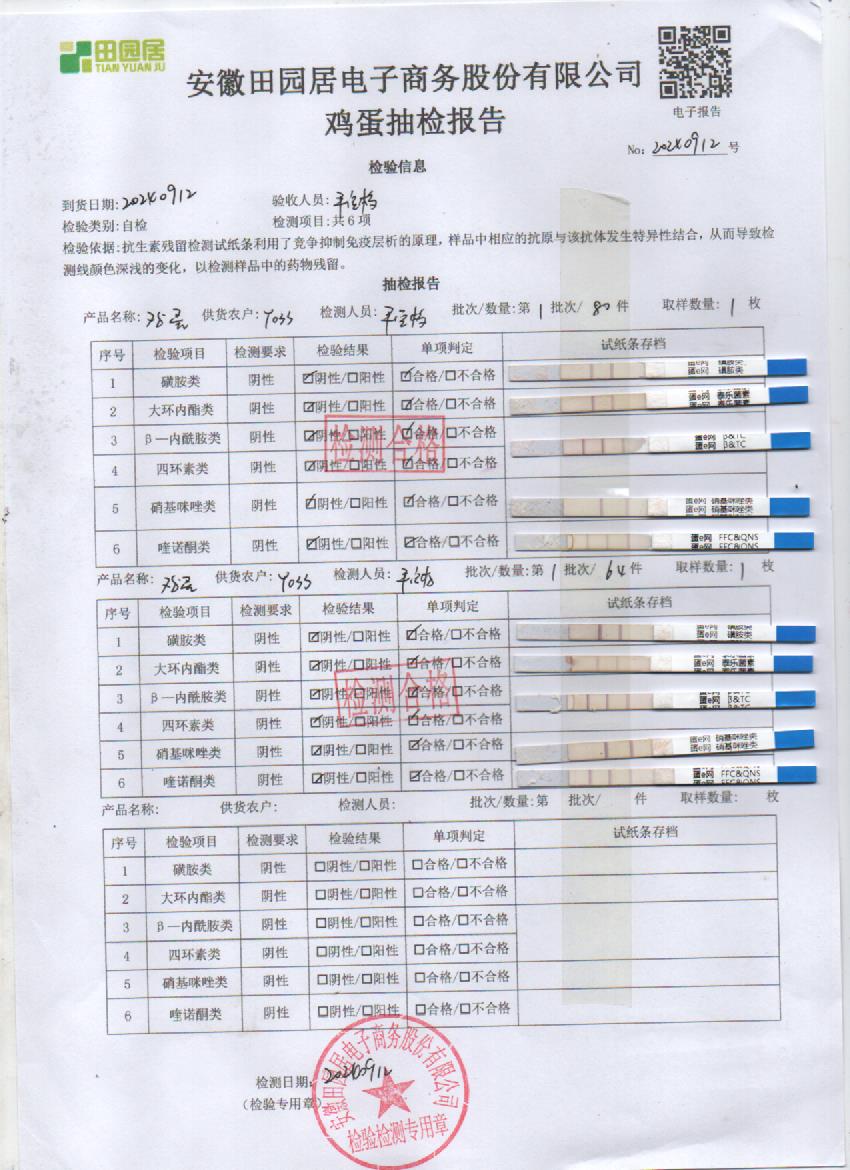 田园居
TIAN YUAN JU
安徽田园居电子商务股份有限公司
鸡蛋抽检报告
电子报告
No: 20240912 号
检验信息
到货日期:20240912 验收人员:
检验类别:自检 检测项目:共6项
检验依据:抗生素残留检测试纸条利用了竞争抑制免疫层析的原理，样品中相应的抗原与该抗体发生特异性结合，从而导致检
测线颜色深浅的变化，以检测样品中的药物残留。
抽检报告
产品名称:鸡蛋 供货农户:Y055 检测人员: 批次/数量:第1批次/80件 取样数量:1枚
序号 检验项目 检测要求 检验结果 单项判定 试纸条存档
1 磺胺类 阴性 ☑阴性/☐阳性 ☑合格/☐不合格 蛋e网 磺胺类
2 大环内酯类 阴性 ☑阴性/☐阳性 ☑合格/☐不合格 蛋e网 泰乐菌素
3 β—内酰胺类 阴性 ☑阴性/☐阳性 ☑合格/☐不合格 蛋e网 β&TC
4 四环素类 阴性 ☑阴性/☐阳性 ☑合格/☐不合格
检测合格
5 硝基咪唑类 阴性 ☑阴性/☐阳性 ☑合格/☐不合格 蛋e网 硝基咪唑类
6 喹诺酮类 阴性 ☑阴性/☐阳性 ☑合格/☐不合格 蛋e网 FFC&QNS
产品名称:鸡蛋 供货农户:Y055 检测人员: 批次/数量:第1批次/64件 取样数量:1枚
序号 检验项目 检测要求 检验结果 单项判定 试纸条存档
1 磺胺类 阴性 ☑阴性/☐阳性 ☑合格/☐不合格 蛋e网 磺胺类
2 大环内酯类 阴性 ☑阴性/☐阳性 ☑合格/☐不合格 蛋e网 泰乐菌素
3 β—内酰胺类 阴性 ☑阴性/☐阳性 ☑合格/☐不合格 蛋e网 β&TC
检测合格
4 四环素类 阴性 ☑阴性/☐阳性 ☑合格/☐不合格
5 硝基咪唑类 阴性 ☑阴性/☐阳性 ☑合格/☐不合格 蛋e网 硝基咪唑类
6 喹诺酮类 阴性 ☑阴性/☐阳性 ☑合格/☐不合格 蛋e网 FFC&QNS
产品名称: 供货农户: 检测人员: 批次/数量:第 批次/ 件 取样数量: 枚
序号 检验项目 检测要求 检验结果 单项判定 试纸条存档
1 磺胺类 阴性 ☐阴性/☐阳性 ☐合格/☐不合格
2 大环内酯类 阴性 ☐阴性/☐阳性 ☐合格/☐不合格
3 β—内酰胺类 阴性 ☐阴性/☐阳性 ☐合格/☐不合格
4 四环素类 阴性 ☐阴性/☐阳性 ☐合格/☐不合格
5 硝基咪唑类 阴性 ☐阴性/☐阳性 ☐合格/☐不合格
6 喹诺酮类 阴性 ☐阴性/☐阳性 ☐合格/☐不合格
检测日期:20240912
(检验专用章)
安徽田园居电子商务股份有限公司
检验检测专用章